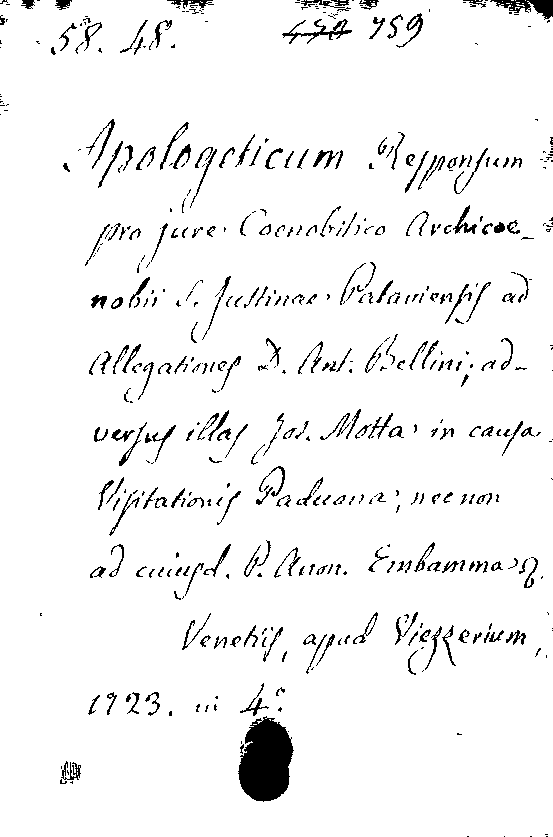 58. 48. 470 759
Apologeticum Responsum
pro jure Coenobitico Archicoe_
nobii S. Justinae Pataviensis ad
Allegationes D. Ant. Bellini; ad_
versus illas Jos. Motta in causa
Visitationis Paduana; nec non
ad cuiusd. P. Anon. Embamma
Venetiis, apud Viezzerium,
1723. in 4°.